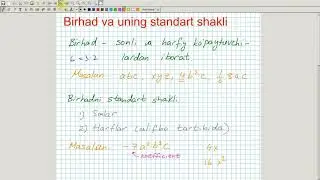 Birhad va uning standart shakli
Birhad – sonli va harfiy ko'paytuvchi-
6=3·2 lardan iborat
Masalan: abc, xyz, 4b³c, 1/6 8ac
Birhadni standart shakli
1) Sonlar
2) Harflar (alifbo tartibida)
Masalan – 7a³b²c 4x
koeffitsient 16x²